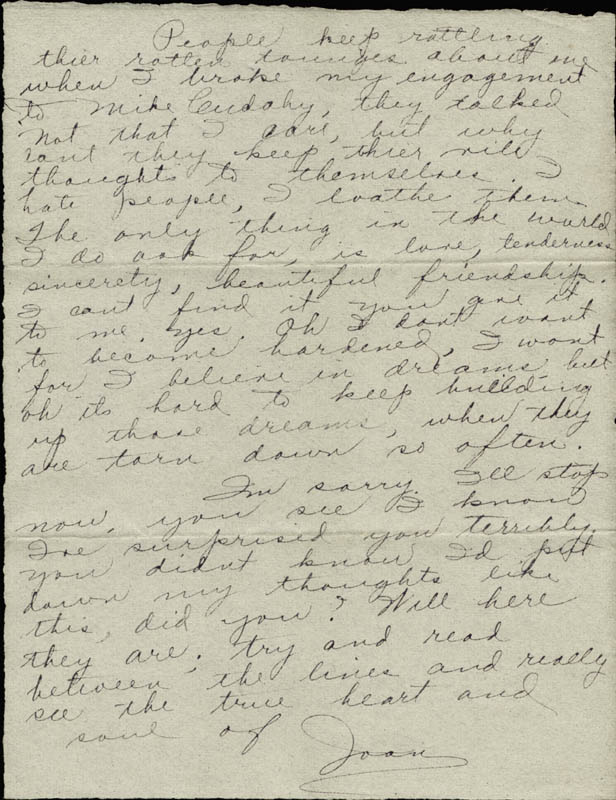 People keep rattling
thier rotten tounges about me
when I broke my engagement
to Mike Cudahy, they talked
not that I care, but why
cant they keep thier vile
thoughts to themselves. I
hate people, I loathe them.
The only thing in the world
I do ask for, is love, tenderness
sincerety, beautiful friendship.
I cant find it you give it
to me. yes. Oh I dont want
to become hardened, I wont
for I believe in dreams, but
oh its hard to keep building
up those dreams, when they
are torn down so often.
I'm sorry. I'll stop
now, you see I know
I've surprised you terribly.
you didnt know I'd put
down my thoughts like
this, did you? Well here
they are; try and read
between the lines and really
see the true heart and
soul of
Joan